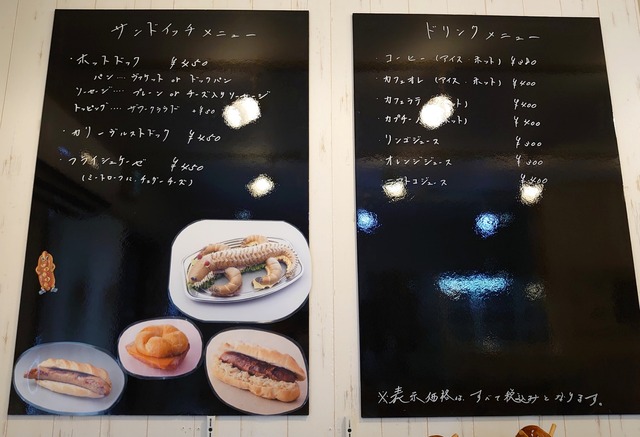 サンドイッチメニュー
・ホットドック ¥450
パン‥‥バケット or ドックパン
ソーセージ‥‥ プレーン or チーズ入りソーセージ
トッピング‥‥ ザワークラウト +50
・カリーヴルストドック ¥450
・フライシュケーゼ ¥450
(ミートローフに、チェダーチーズ)
ドリンクメニュー
・コーヒー (アイス・ホット)
・カフェオレ (アイス・ホット) ¥400
・カフェラテ ¥400
・カプチーノ ¥400
・リンゴジュース ¥300
・オレンジジュース ¥300
トマトジュース ¥400
※表示価格は、すべて税込みとなります。